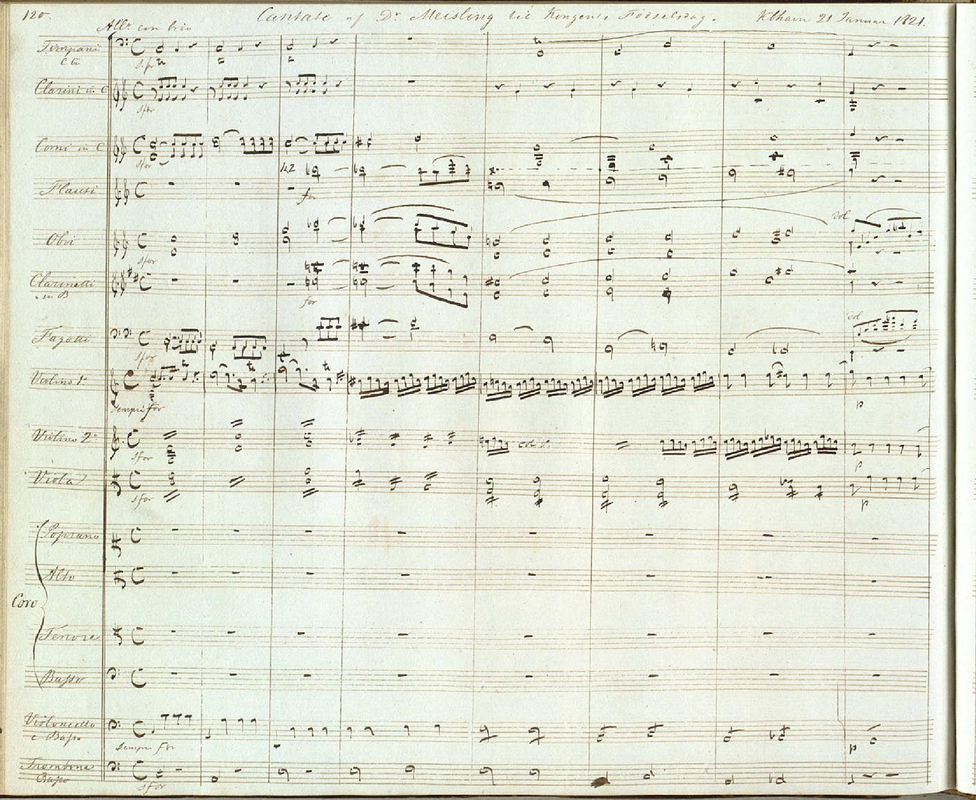 120. Cantate af Dr Meisling til Kongens Födselsdag. Kbhavn 21 Januar 1821.
Allo con brio
Timpani
C
sfor
Clarini in C
sfor
Corni in C
sfor
Flauti
for
Oboi
sfor
col
Clarinetti
in B
for
Fagotti
sfor
col
Violino 1o
sempre for
p
Violino 2o
sfor
col
p
Viola
sfor
p
Coro
Soprano
Alto
Tenore
Basso
Violoncello
e Basso
Sempre for
p
Trombone
Basso
sfor